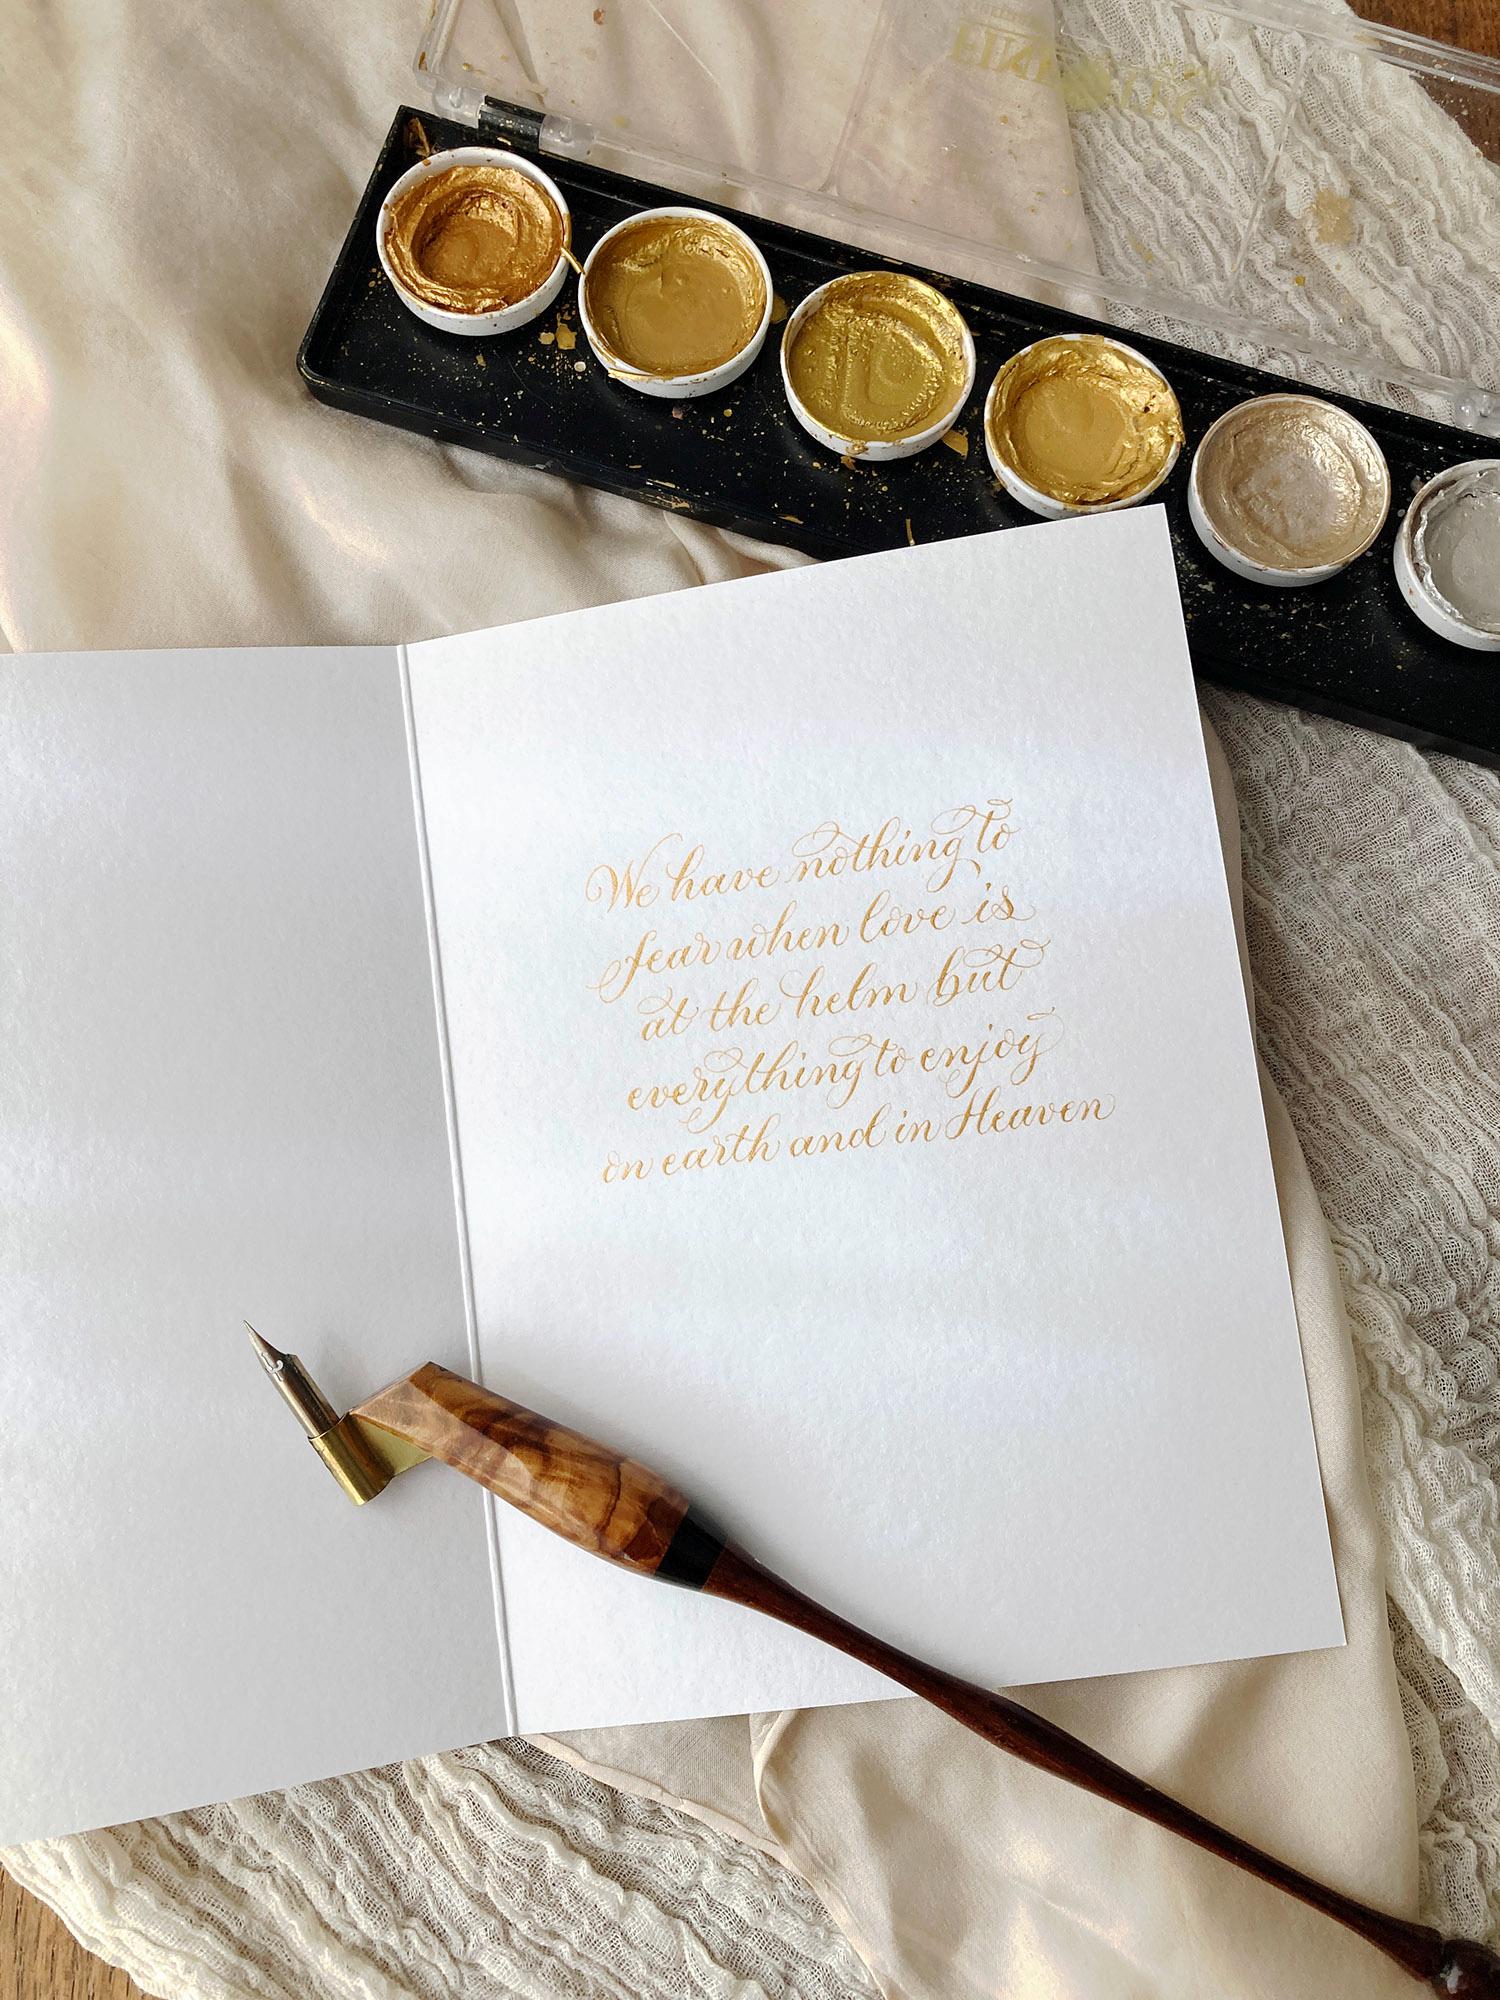 We have nothing to
fear when love is
at the helm but
everything to enjoy
on earth and in Heaven